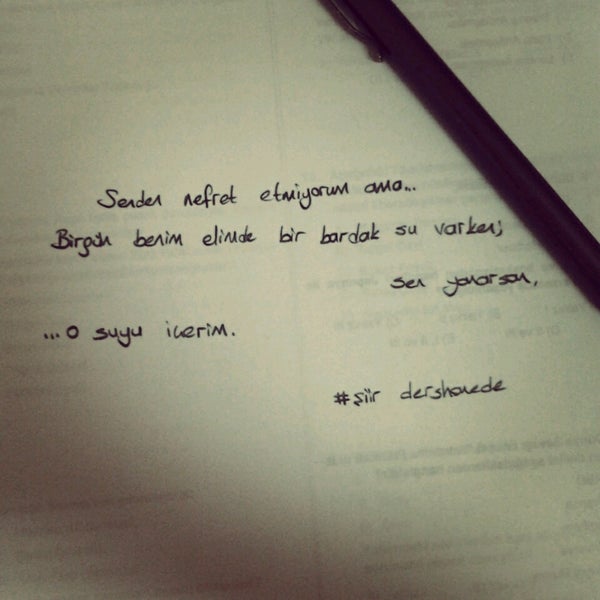 Senden nefret etmiyorum ama...
Birgün benim elimde bir bardak su varken;
sen yanarsan,
...o suyu içerim.
#şiir dershanede